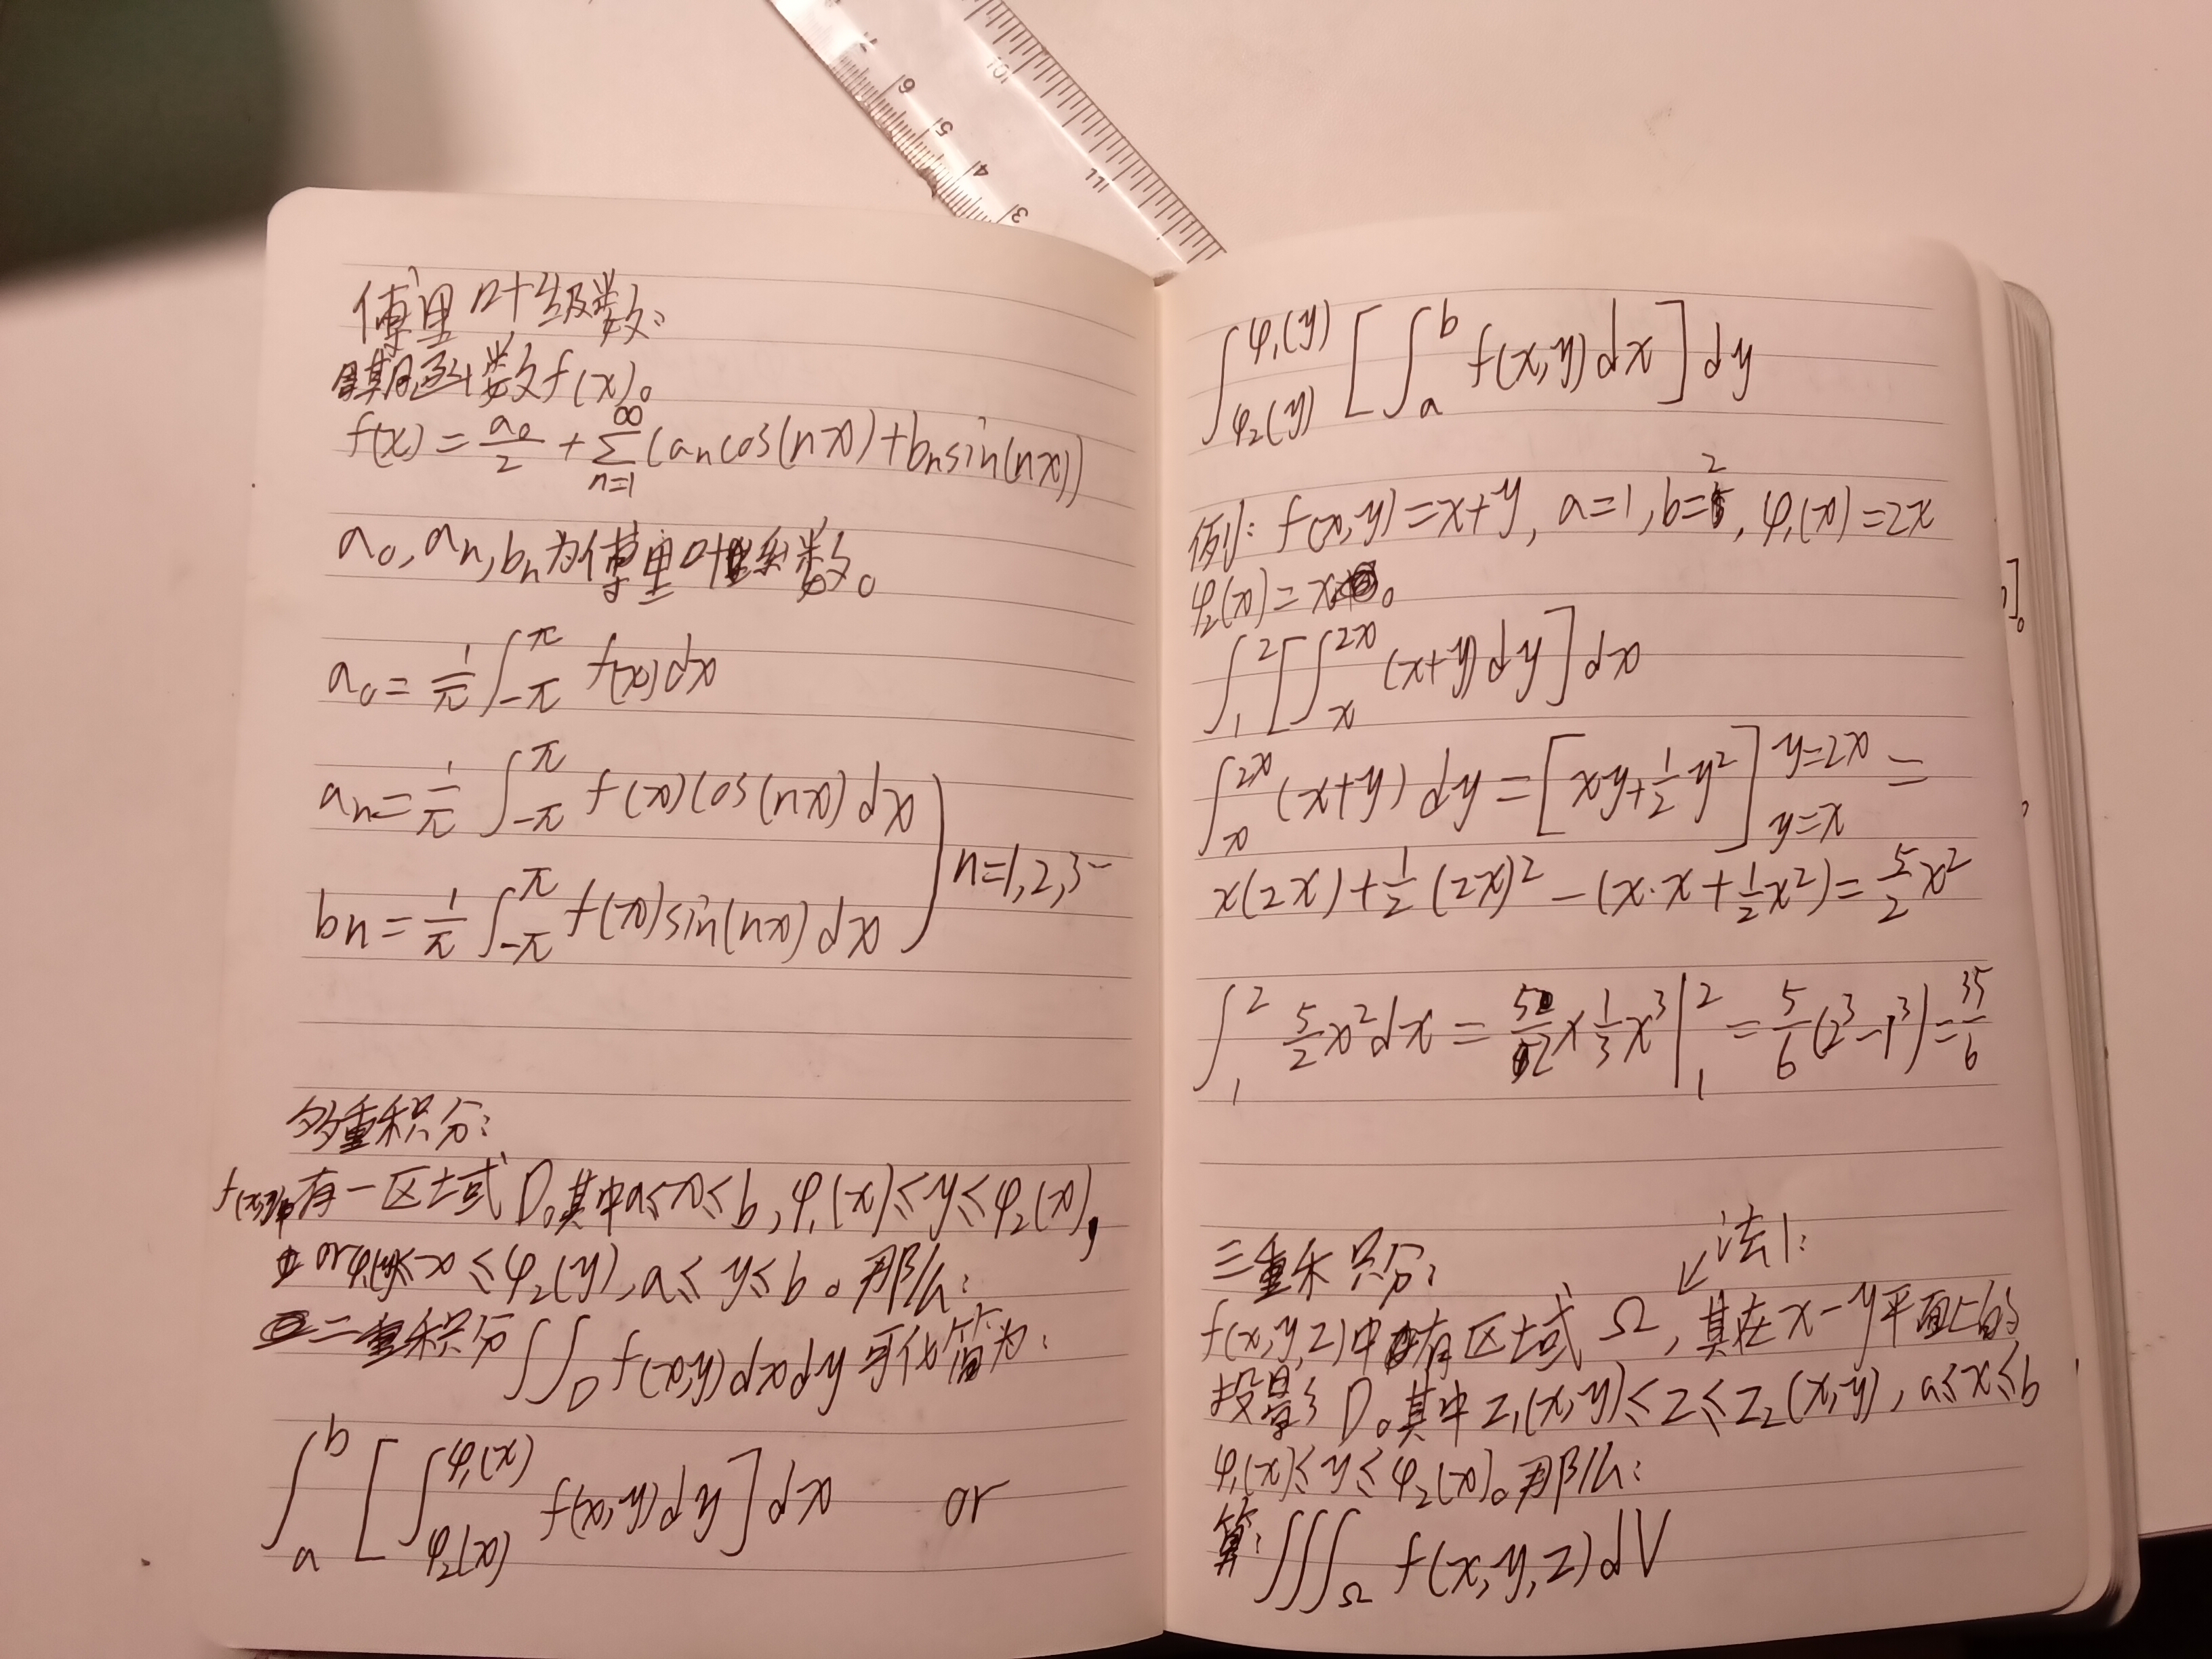 傅里叶级数:
周期函数f(x)。
f(x) = a₀/2 + Σ_{n=1}^{∞} (aₙcos(nx)+bₙsin(nx))
a₀, aₙ, bₙ为傅里叶系数。
a₀ = 1/π ∫_{-π}^{π} f(x)dx
aₙ = 1/π ∫_{-π}^{π} f(x)cos(nx)dx
bₙ = 1/π ∫_{-π}^{π} f(x)sin(nx)dx
n=1,2,3…
多重积分:
f(x,y)中有一区域D。其中a≤x≤b, φ₁(x)≤y≤φ₂(x),
or φ₁(y)≤x≤φ₂(y), a≤y≤b。那么:
二重积分∬_D f(x,y)dxdy可化简为:
∫_a^b [∫_{φ₂(x)}^{φ₁(x)} f(x,y)dy]dx or
∫_{φ₂(y)}^{φ₁(y)} [∫_a^b f(x,y)dx]dy
例: f(x,y)=x+y, a=1, b=2, φ₁(x)=2x
φ₂(x)=x。
∫_1^2 [∫_x^{2x} (x+y)dy]dx
∫_x^{2x} (x+y)dy = [xy+1/2 y²]_{y=x}^{y=2x} =
x(2x)+1/2(2x)²-(x·x+1/2x²)=5/2x²
∫_1^2 5/2x²dx = 5/2×1/3x³|_1^2 = 5/6(2³-1³)=35/6
三重积分:
法1:
f(x,y,z)中有区域Ω, 其在x-y平面上的
投影D。其中z₁(x,y)≤z≤z₂(x,y), a≤x≤b
φ₁(x)≤y≤φ₂(x)。那么:
算: ∭_Ω f(x,y,z)dV
3
4
5
6
10
11